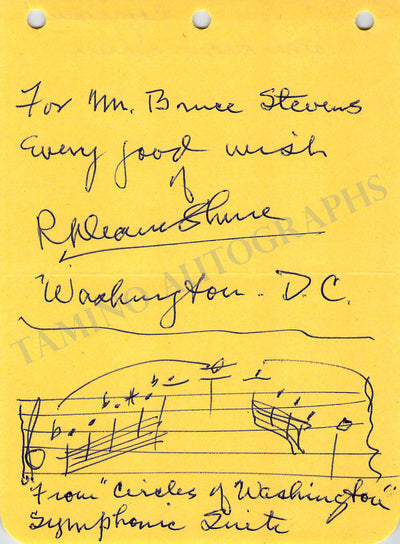 For Mr. Bruce Stevens
Every good wish
of
R. Deane Shure
"Washington - D.C.
TAMINO AUTOGRAPHS
"From "Circles of Washington"
Symphonic Suite